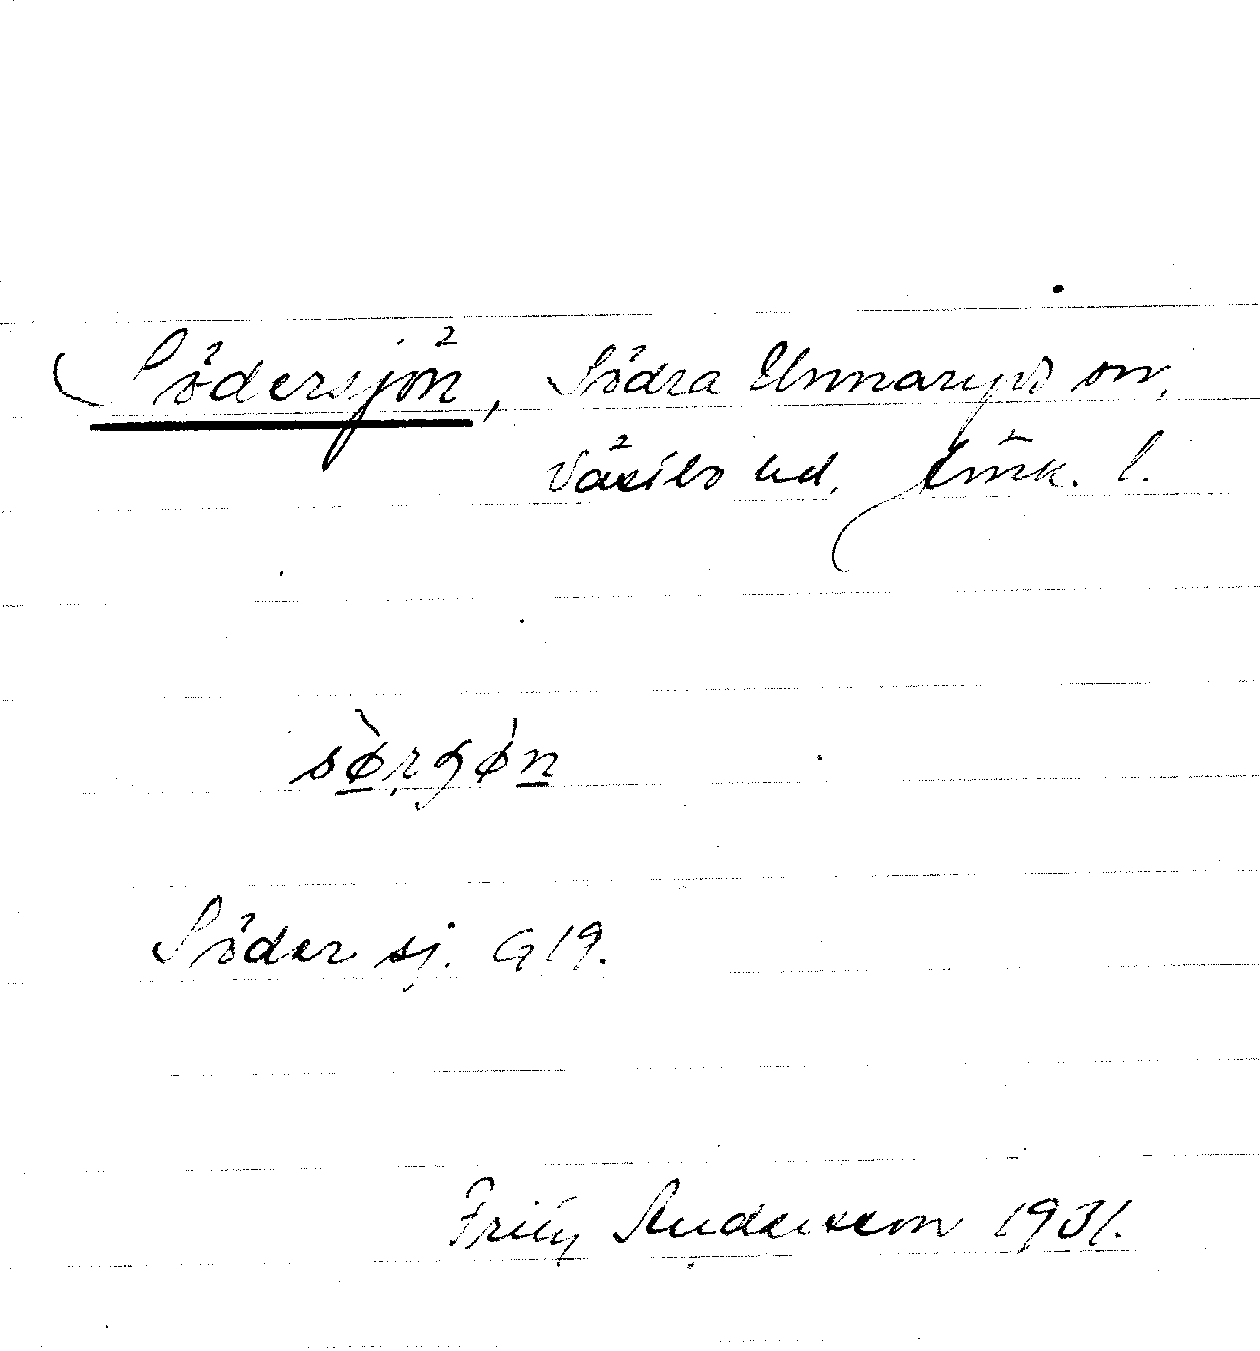 Södersjön, Södra Unnaryds sn,
Västbo hd, Jönk. l.
sø̀rʂø̀n
Söder sj. G 19.
Fritz Andersson 1931.